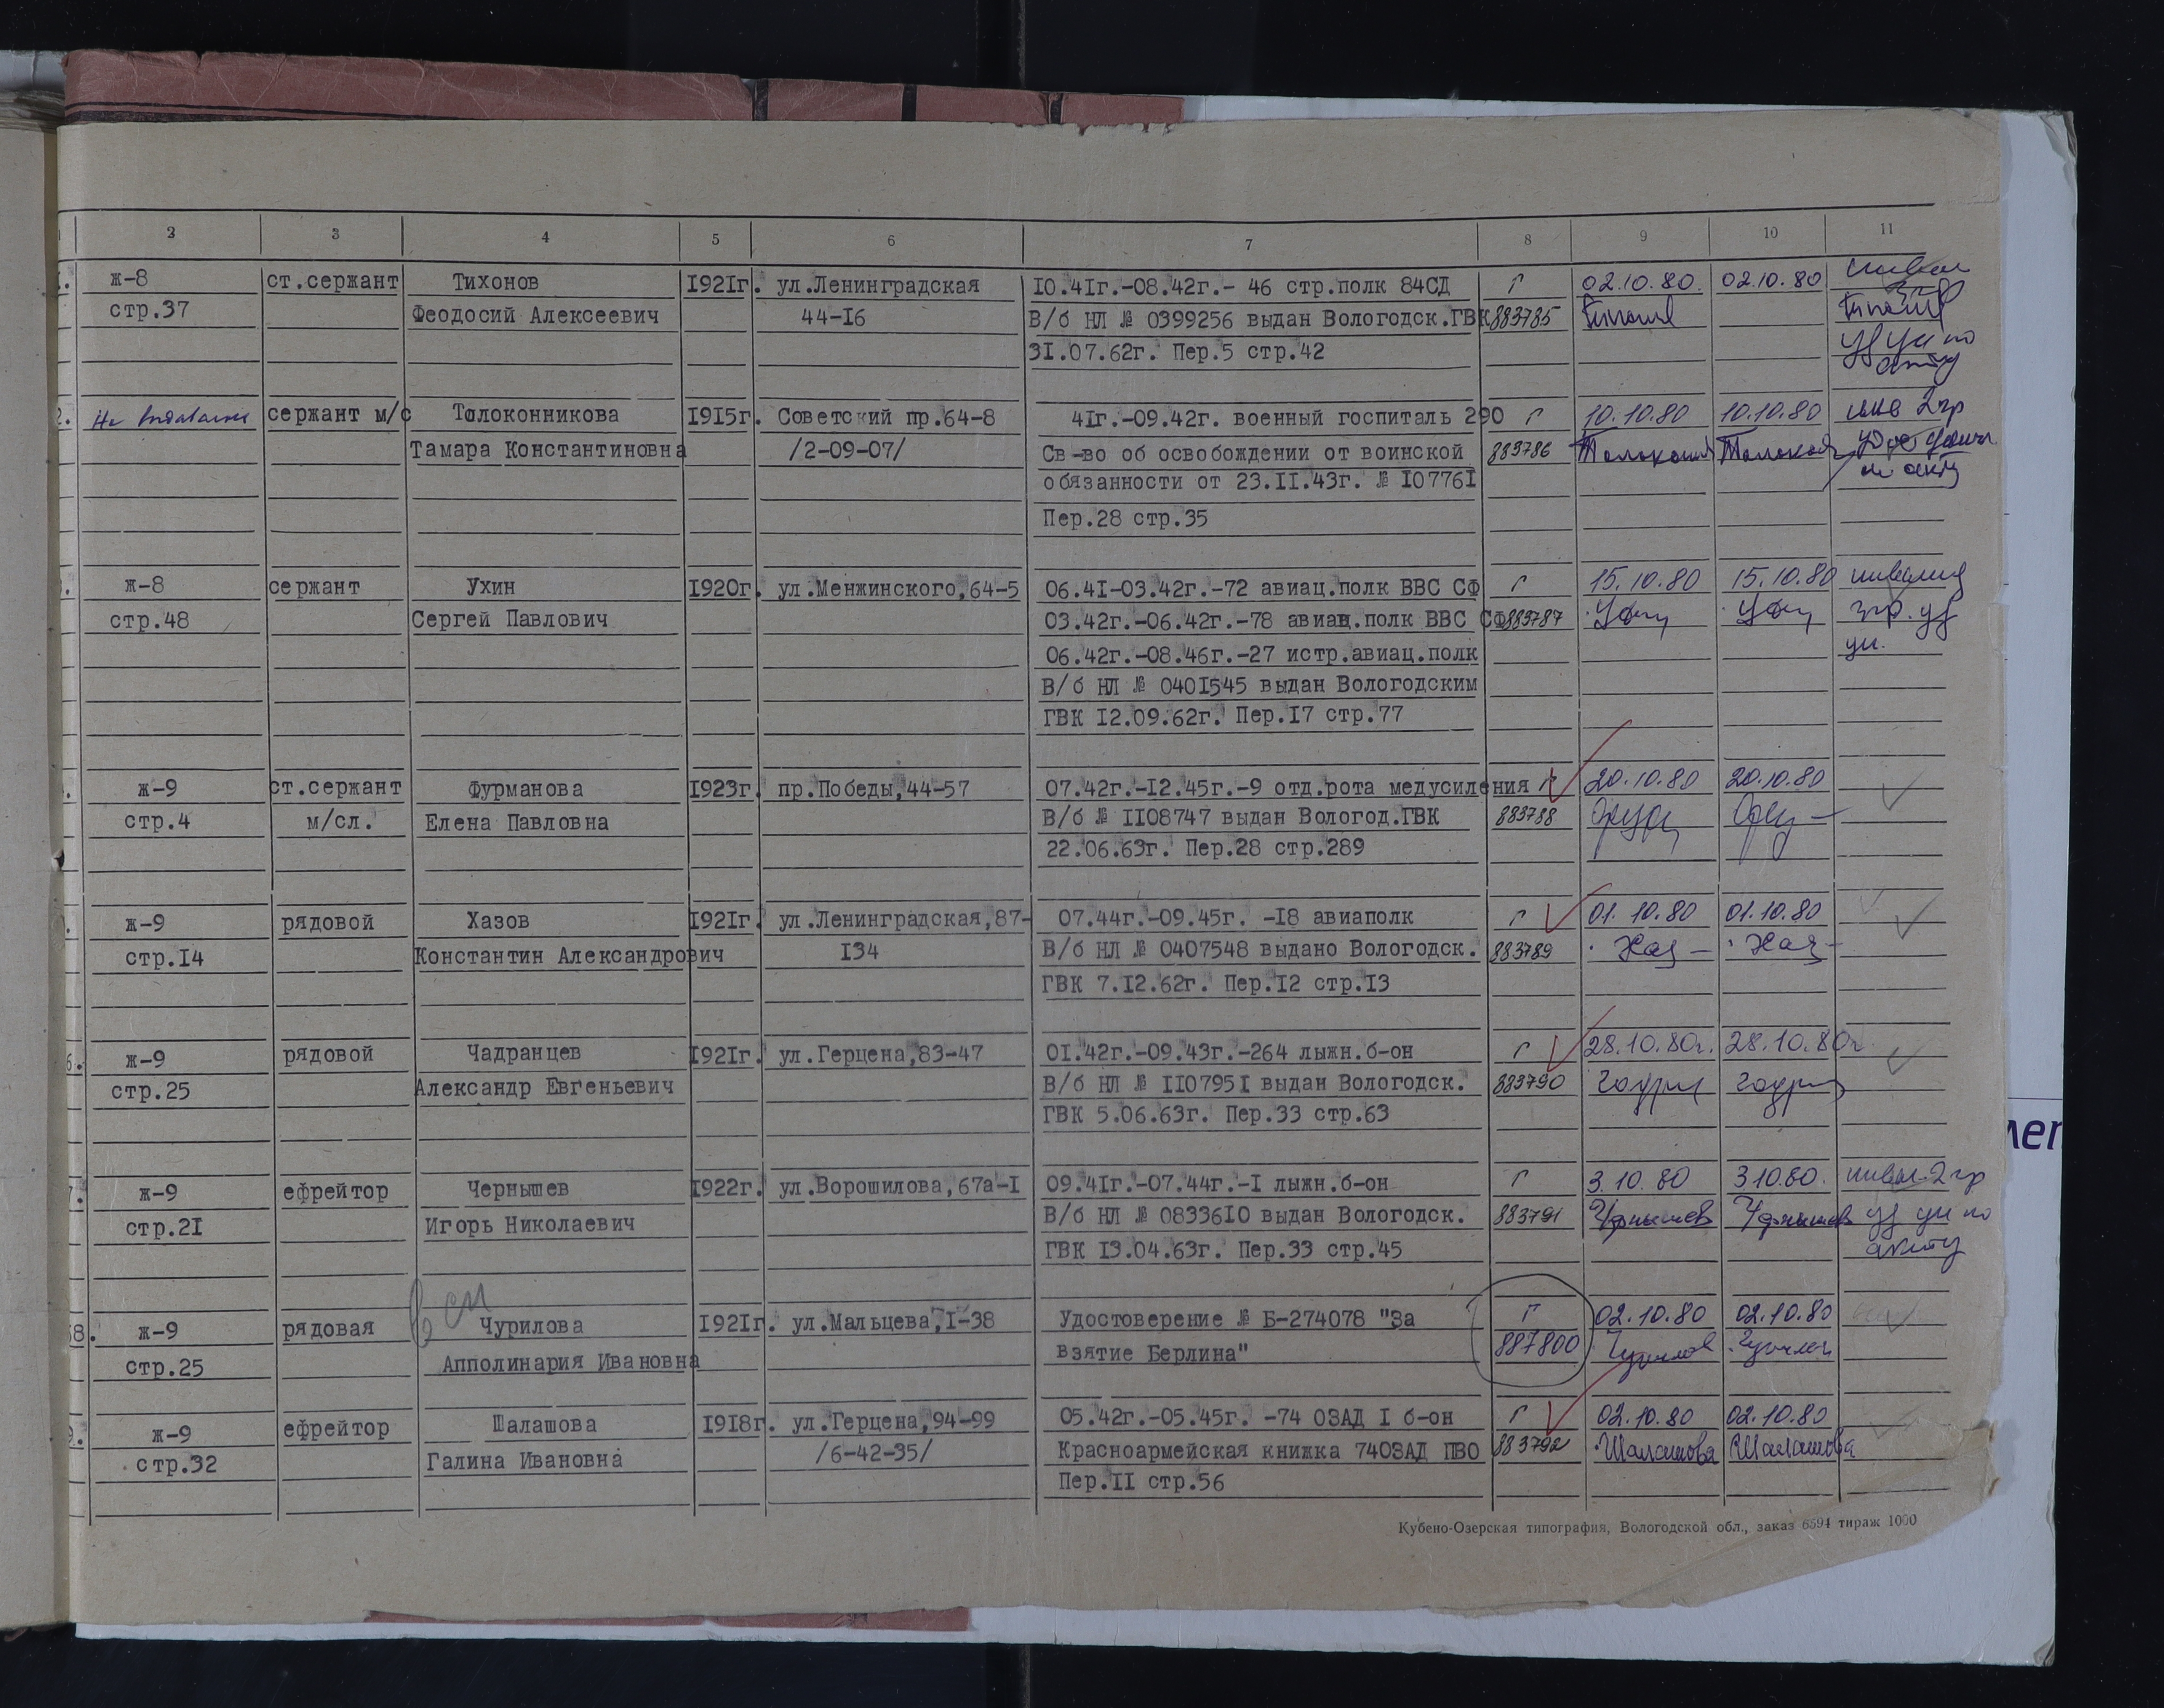 2 3 4 5 6 7 8 9 10 11
ж-8 ст.сержант Тихонов 1921г. ул.Ленинградская 10.41г.-08.42г.- 46 стр.полк 84СД Г 02.10.80. 02.10.80
стр.37 Феодосий Алексеевич 44-16 В/б НЛ № 0399256 выдан Вологодск.ГВК 883785
31.07.62г. Пер.5 стр.42
уд ун по
акту
2. Не выдавалось сержант м/с Толоконникова 1915г. Советский пр.64-8 41г.-09.42г. военный госпиталь 290 Г 10.10.80 10.10.80 инв 2 гр
Тамара Константиновна /2-09-07/ Св-во об освобождении от воинской 883786
обязанности от 23.11.43г. № 107761 по акту
Пер.28 стр.35
ж-8 сержант Ухин 1920г. ул.Менжинского,64-5 06.41-03.42г.-72 авиац.полк ВВС СФ Г 15.10.80 15.10.80 инвалид
стр.48 Сергей Павлович 03.42г.-06.42г.-78 авиац.полк ВВС СФ 883787 гр. уд
06.42г.-08.46г.-27 истр.авиац.полк ун.
В/б НЛ № 0401545 выдан Вологодским
ГВК 12.09.62г. Пер.17 стр.77
ж-9 ст.сержант Фурманова 1923г. пр.Победы,44-57 07.42г.-12.45г.-9 отд.рота медусиления Г 20.10.80 20.10.80
стр.4 м/сл. Елена Павловна В/б № 1108747 выдан Вологод.ГВК 883788
22.06.63г. Пер.28 стр.289
ж-9 рядовой Хазов 1921г. ул.Ленинградская,87- 07.44г.-09.45г. -18 авиаполк Г 01.10.80 01.10.80
стр.14 Константин Александрович 134 В/б НЛ № 0407548 выдано Вологодск. 883789 Хаз Хаз
ГВК 7.12.62г. Пер.12 стр.13
6. ж-9 рядовой Чадранцев 1921г. ул.Герцена,83-47 01.42г.-09.43г.-264 лыжн.б-он Г 28.10.80г. 28.10.80г.
стр.25 Александр Евгеньевич В/б НЛ № 1107951 выдан Вологодск. 883790
ГВК 5.06.63г. Пер.33 стр.63
7. ж-9 ефрейтор Чернышев 1922г. ул.Ворошилова,67а-1 09.41г.-07.44г.-1 лыжн.б-он Г 3.10.80 3.10.80. инвал. 2 гр
стр.21 Игорь Николаевич В/б НЛ № 0833610 выдан Вологодск. 883791 Чернышев Чернышев уд ун по
ГВК 13.04.63г. Пер.33 стр.45 акту
8. ж-9 рядовая Чурилова 1921г. ул.Мальцева,1-38 Удостоверение № Б-274078 "За Г 02.10.80 02.10.80
стр.25 Апполинария Ивановна взятие Берлина" 887800
9. ж-9 ефрейтор Шалашова 1918г. ул.Герцена,94-99 05.42г.-05.45г. -74 ОЗАД 1 б-он Г 02.10.80 02.10.80
стр.32 Галина Ивановна /6-42-35/ Красноармейская книжка 74ОЗАД ПВО 883792 Шалашова Шалашова
Пер.11 стр.56
Кубено-Озерская типография, Вологодской обл., заказ 6594 тираж 1000